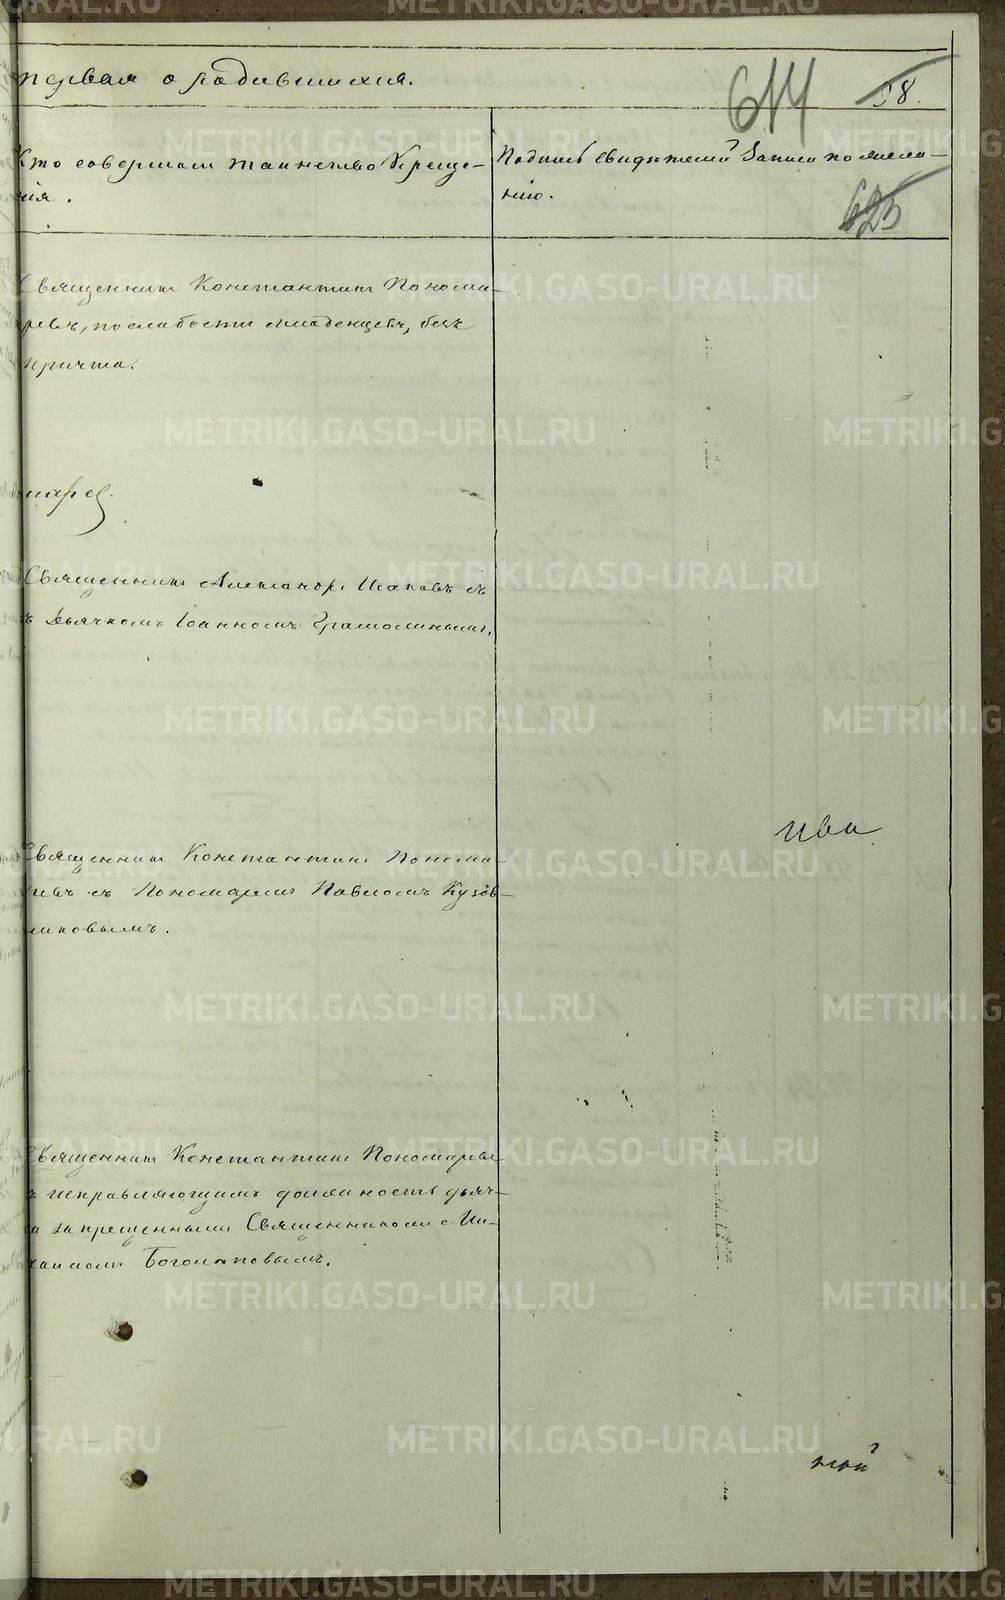 первая о родившихся.
614
58.
Кто совершал таинство Креще-
нія.
Подпись свидѣтелей записи по жела-
нію.
625
Священникъ Константинъ Понома-
ревъ, по слабости младенцевъ, безъ
причта.
марев
Священникъ Александръ Исаковъ съ
Дьячкомъ Іоанномъ Грамолинымъ.
Ива
Священникъ Константинъ Понома-
ревъ съ Пономаремъ Павломъ Кузов-
никовымъ.
Священникъ Константинъ Пономаревъ
съ исправляющимъ должность дьяч-
ка запрещеннымъ Священникомъ Ми-
хаиломъ Боголѣповымъ.
ной
METRIKI.GASO-URAL.RU